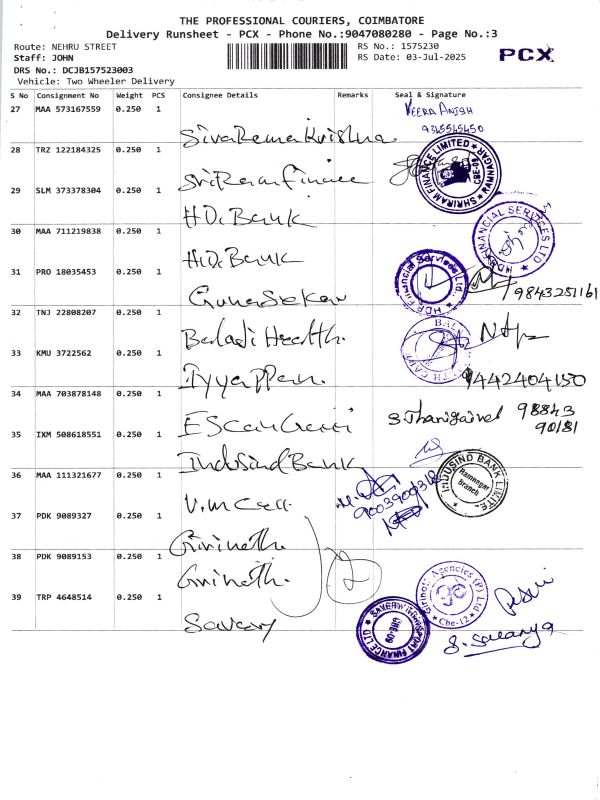 THE PROFESSIONAL COURIERS, COIMBATORE
Delivery Runsheet - PCX - Phone No.:9047080280 - Page No.:3
Route: NEHRU STREET
Staff: JOHN
DRS No.: DCJB157523003
Vehicle: Two Wheeler Delivery
RS No.: 1575230
RS Date: 03-Jul-2025
PCX
S No Consignment No Weight PCS Consignee Details Remarks Seal & Signature
27 MAA 573167559 0.250 1 SivaRamaKrishna
VEERA ANISH
9345545450
28 TRZ 122184325 0.250 1 Sri Ram Finance
SHRIRAM FINANCE LIMITED
29 SLM 373378304 0.250 1 HD. Bank
HDB FINANCIAL SERVICES LTD
30 MAA 711219838 0.250 1 H.D. Bank
HDF Financial Services Ltd.
31 PRO 18035453 0.250 1 GunaSekar
9843251161
32 TNJ 22808207 0.250 1 Balaji Health.
33 KMU 3722562 0.250 1 Iyyappan.
9442404150
34 MAA 703878148 0.250 1
S. Thanigaivel 98843
90181
35 IXM 508618551 0.250 1 Indusind Bank
INDUSIND BANK LIMITE.
Ramnagar
Branch
36 MAA 111321677 0.250 1 V.M Care
9003900318
37 PDK 9089327 0.250 1 Girinath.
38 PDK 9089153 0.250 1 Girinath.
Girinath Agencies (P) Ltd
Cbe-12
39 TRP 4648514 0.250 1 Savery
SAVERY TRANSPORT FINANCE LTD
CBE-09
S. Saranya